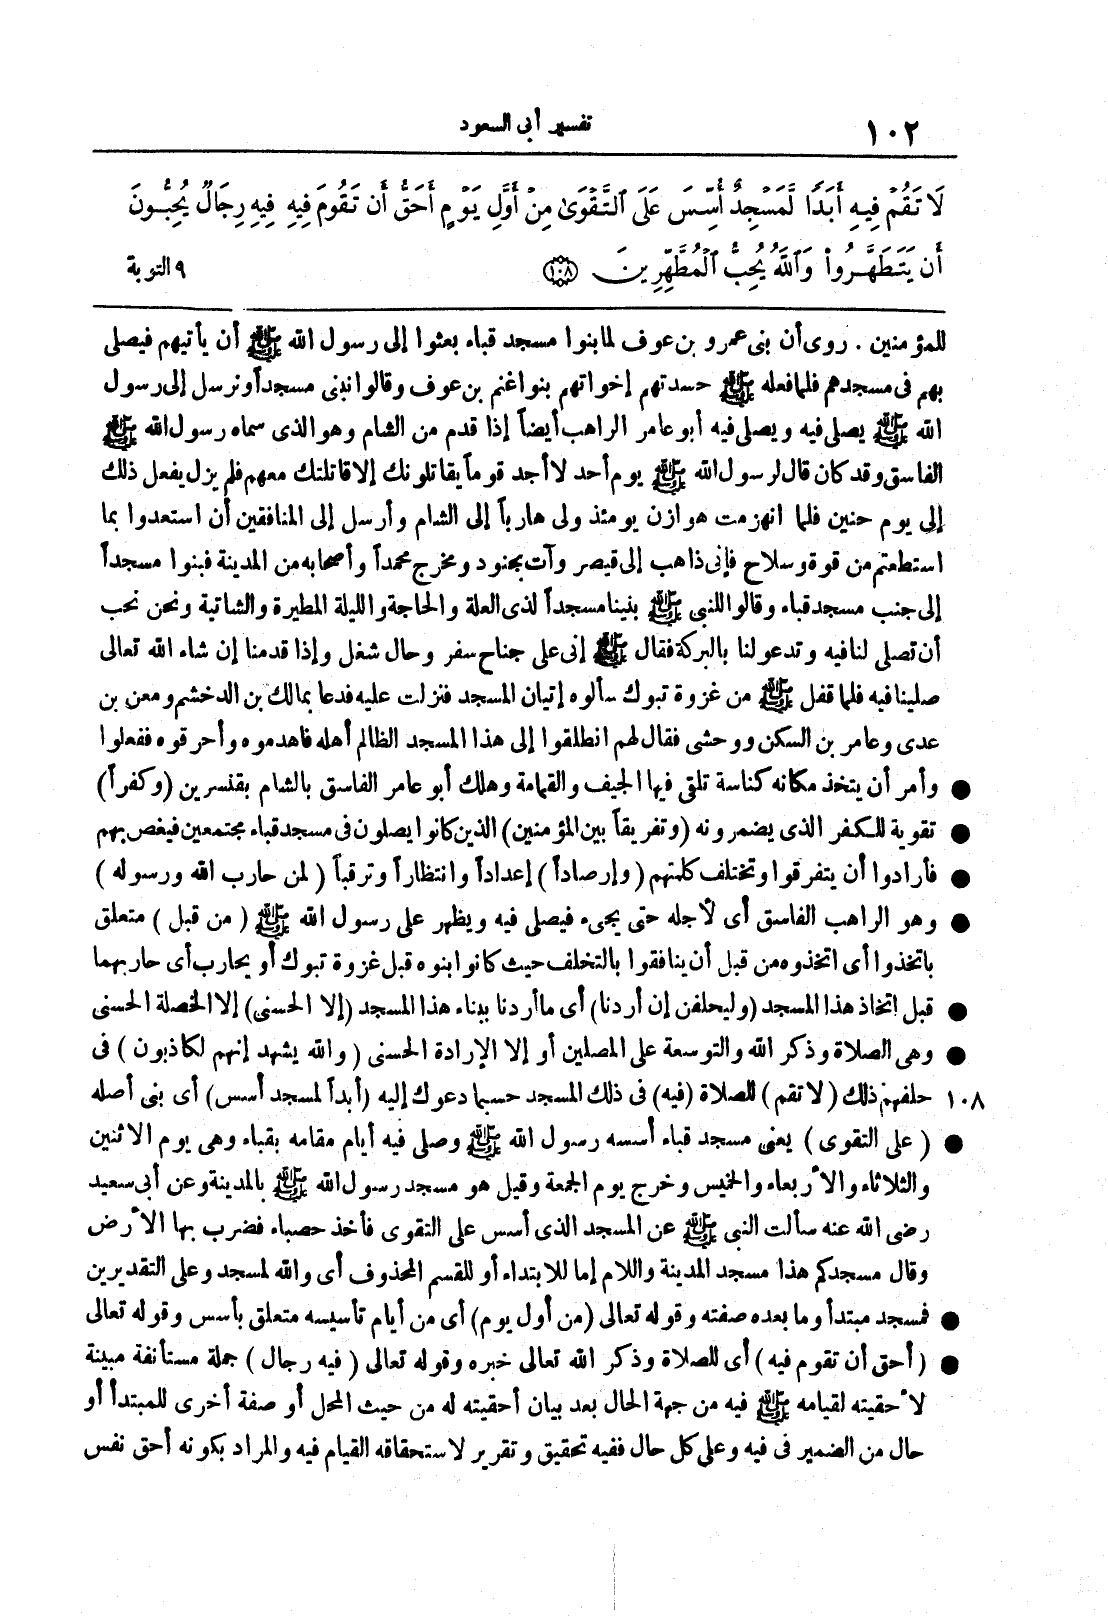 ١٠٢ تفسير أبى السعود
لَا تَقُمْ فِيهِ أَبَدًا لَّمَسْجِدٌ أُسِّسَ عَلَى ٱلتَّقْوَىٰ مِنْ أَوَّلِ يَوْمٍ أَحَقُّ أَن تَقُومَ فِيهِ فِيهِ رِجَالٌ يُحِبُّونَ
أَن يَتَطَهَّرُوا۟ وَٱللَّهُ يُحِبُّ ٱلْمُطَّهِّرِينَ ١٠٨ ٩ التوبة
للمؤمنين . روى أن بنى عمرو بن عوف لما بنوا مسجد قباء بعثوا إلى رسول الله ﷺ أن يأتيهم فيصلى
بهم فى مسجدهم فلما فعله ﷺ حسدتهم إخواتهم بنو اغنم بن عوف وقالوا نبنى مسجداً ونرسل إلى رسول
الله ﷺ يصلى فيه ويصلى فيه أبو عامر الراهب أيضاً إذا قدم من الشام وهو الذى سماه رسول الله ﷺ
الفاسق وقد كان قال لرسول الله ﷺ يوم أحد لا أجد قوماً يقاتلونك إلا قاتلتك معهم فلم يزل يفعل ذلك
إلى يوم حنين فلما انهزمت هوازن يومئذ ولى هارباً إلى الشام وأرسل إلى المنافقين أن استعدوا بما
استطعتم من قوة وسلاح فإنى ذاهب إلى قيصر وآت بجنود ومخرج محمداً وأصحابه من المدينة فبنوا مسجداً
إلى جنب مسجد قباء وقالوا للنبى ﷺ بنينا مسجداً لذى العلة والحاجة والليلة المطيرة والشاتية ونحن نحب
أن تصلى لنا فيه وتدعو لنا بالبركة فقال ﷺ إنى على جناح سفر وحال شغل وإذا قدمنا إن شاء الله تعالى
صلينا فيه فلما قفل ﷺ من غزوة تبوك سألوه إتيان المسجد فنزلت عليه فدعا بمالك بن الدخشم ومعن بن
عدى وعامر بن السكن ووحشى فقال لهم انطلقوا إلى هذا المسجد الظالم أهله فاهدموه وأحرقوه ففعلوا
● وأمر أن يتخذ مكانه كناسة تلقى فيها الجيف والقمامة وهلك أبو عامر الفاسق بالشام بقنسرين (وكفراً)
● تقوية للكفر الذى يضمرونه (وتفريقاً بين المؤمنين) الذين كانوا يصلون فى مسجد قباء مجتمعين فيغص بهم
● فأرادوا أن يتفرقوا وتختلف كلمتهم (وإرصاداً) إعداداً وانتظاراً وترقباً (لمن حارب الله ورسوله)
● وهو الراهب الفاسق أى لأجله حتى يجىء فيصلى فيه ويظهر على رسول الله ﷺ (من قبل) متعلق
باتخذوا أى اتخذوه من قبل أن ينافقوا بالتخلف حيث كانوا بنوه قبل غزوة تبوك أو يحارب أى حاربهما
● قبل اتخاذ هذا المسجد (وليحلفن إن أردنا) أى ما أردنا ببناء هذا المسجد (إلا الحسنى) إلا الخصلة الحسنى
● وهى الصلاة وذكر الله والتوسعة على المصلين أو إلا الإرادة الحسنى (والله يشهد إنهم لكاذبون) فى
١٠٨ حلفهم ذلك (لا تقم) للصلاة (فيه) فى ذلك المسجد حسبما دعوك إليه (أبداً لمسجد أسس) أى بنى أصله
● (على التقوى) يعنى مسجد قباء أسسه رسول الله ﷺ وصلى فيه أيام مقامه بقباء وهى يوم الاثنين
والثلاثاء والأربعاء والخميس وخرج يوم الجمعة وقيل هو مسجد رسول الله ﷺ بالمدينة وعن أبى سعيد
رضى الله عنه سألت النبى ﷺ عن المسجد الذى أسس على التقوى فأخذ حصباء فضرب بها الأرض
وقال مسجدكم هذا مسجد المدينة واللام إما للابتداء أو للقسم المحذوف أى والله لمسجد وعلى التقديرين
● فمسجد مبتدأ وما بعده صفته وقوله تعالى (من أول يوم) أى من أيام تأسيسه متعلق بأسس وقوله تعالى
● (أحق أن تقوم فيه) أى للصلاة وذكر الله تعالى خبره وقوله تعالى (فيه رجال) جملة مستأنفة مبينة
لأحقيته لقيامه ﷺ فيه من جهة الحال بعد بيان أحقيته له من حيث المحل أو صفة أخرى للمبتدأ أو
حال من الضمير فى فيه وعلى كل حال ففيه تحقيق وتقرير لاستحقاقه القيام فيه والمراد بكونه أحق نفس